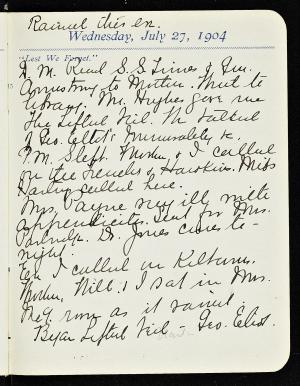 Rained this eve.
Wednesday, July 27, 1904
"Lest We Forget."
A. M. Read S. S. Times & Gen.
Armstrong to Mother. Went to
library. Mr. Hughes gave me
The Lifted Veil. We talked
of Geo. Eliot's Immorality &c.
P. M. Slept. Mother & I called
on the Frenches & Hawkins. Miss
Darling called here.
Mrs. Payne very ill with
appendicitis. Sent for Mrs.
Dr. Jones comes to-
night.
Eve. I called on
Mother, Will & I sat in Mrs.
room as it rained.
Began Lifted Veil - Geo. Eliot.